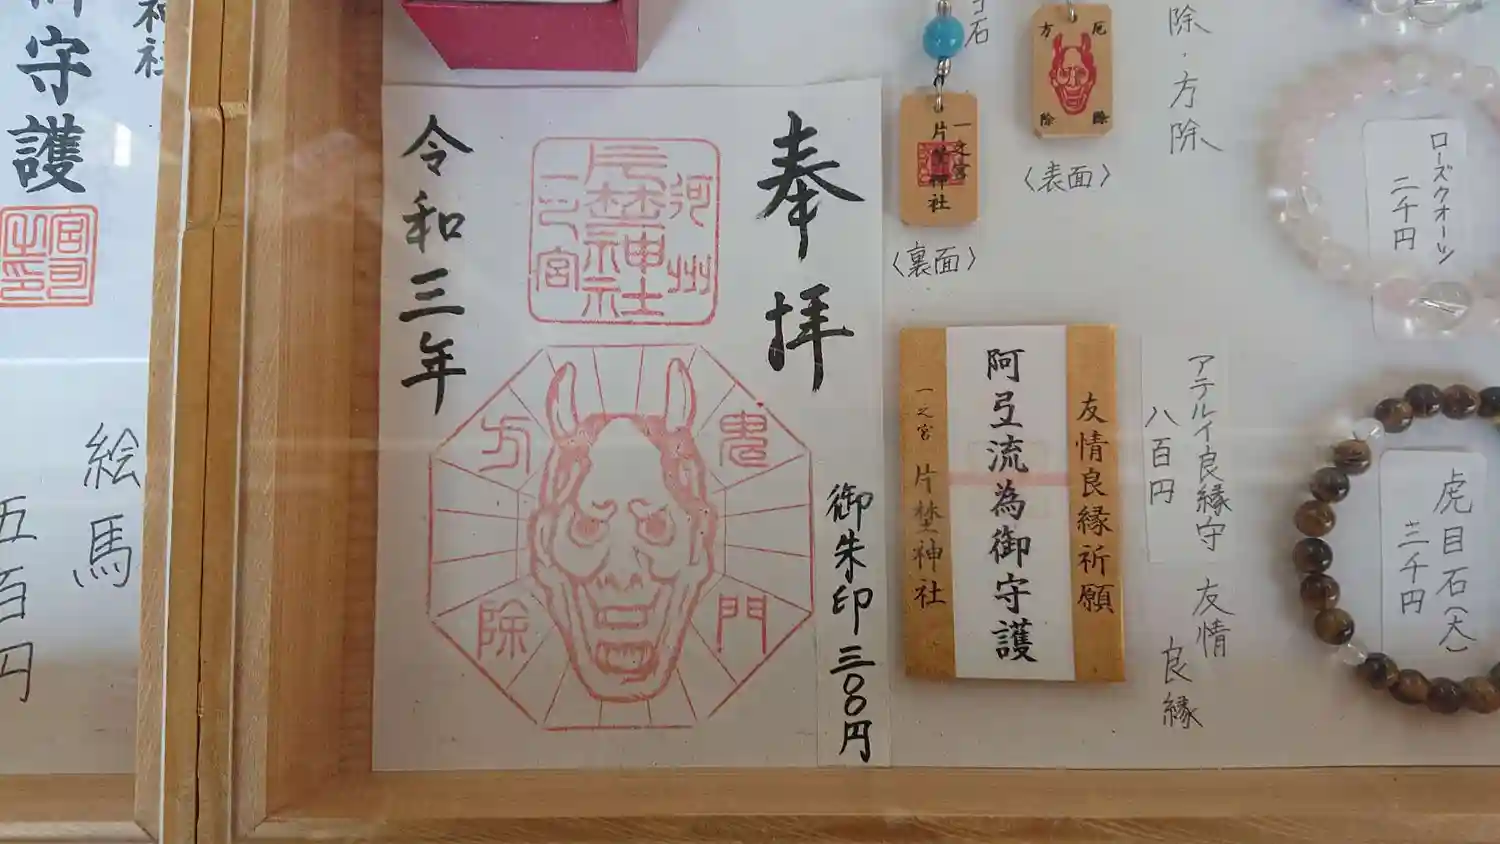 御守護
神社
宮司之印
絵馬
五百円
奉拝
河州
片埜神社
一之宮
令和三年
鬼門
方除
御朱印 三〇〇円
石
一之宮
片埜神社
〈裏面〉
厄除
方除
〈表面〉
除・方除
友情良縁祈願
阿弖流為御守護
一之宮 片埜神社
アテルイ良縁守
八百円
友情
良縁
ローズクオーツ
二千円
虎目石(大)
三千円